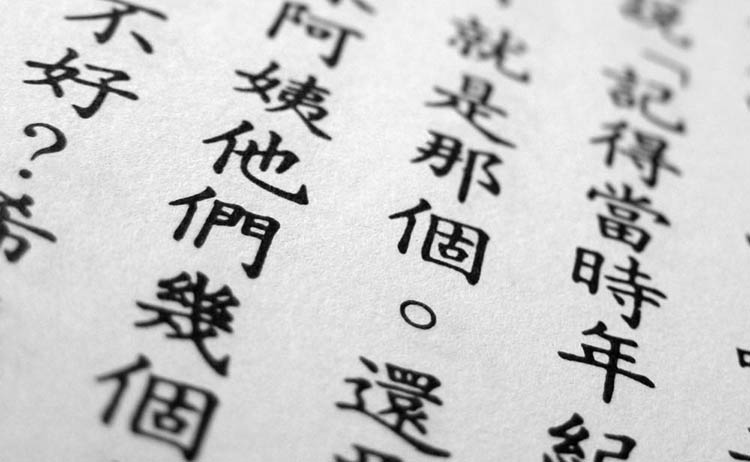 說「記得當時年紀
就是那個。還
阿姨他們幾個
不好？